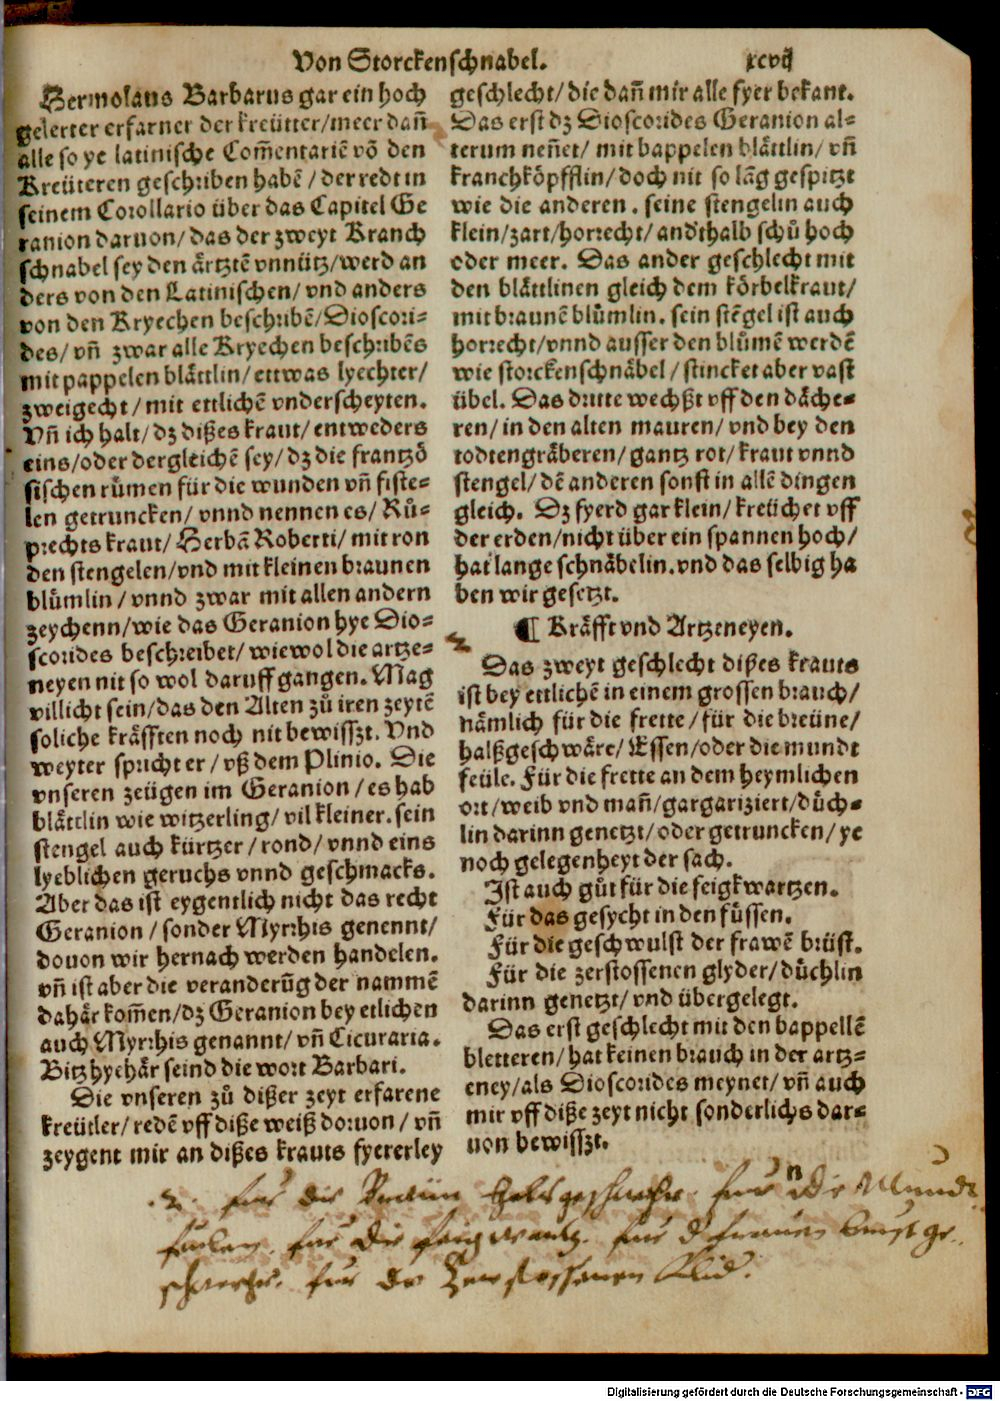 Von Storckenschnabel. xcvij
Hermolaus Barbarus gar ein hoch
gelerter erfarner der kreütter/meer dañ
alle so ye latinische Com̃entariẽ võ den
Kreüteren geschriben habẽ / der redt in
seinem Corollario über das Capitel Ge
ranion daruon/ das der zweyt Kranch
schnabel sey den ärtztẽ vnnütz/werd an
ders von den Latinischen/ vnd anders
von den Kryechen beschribẽ/Dioscori⸗
des/ vñ zwar alle Kryechen beschribẽs
mit pappelen blättlin/ ettwas lyechter/
zweigecht/ mit ettlichẽ vnderscheyten.
Vñ ich halt/ dz dißes kraut/ entweders
eins/oder dergleichẽ sey/ dz die frantzö
sischen růmen für die wunden vñ fiste⸗
len getruncken/ vnnd nennen es/ Rů⸗
prechts kraut/ Herbã Roberti/ mit ron
den stengelen/vnd mit kleinen braunen
blůmlin / vnnd zwar mit allen andern
zeychenn/wie das Geranion hye Dio⸗
scorides beschreibet/ wiewol die artze⸗
neyen nit so wol daruff gangen. Mag
villicht sein/das den Alten zů iren zeytẽ
soliche kräfften noch nit bewisszt. Vnd
weyter spricht er / vß dem Plinio. Die
vnseren zeügen im Geranion / es hab
blättlin wie witzerling/ vil kleiner. sein
stengel auch kürtzer / rond/ vnnd eins
lyeblichen geruchs vnnd geschmacks.
Aber das ist eygentlich nicht das recht
Geranion / sonder Myrrhis genennt/
douon wir hernach werden handelen.
vñ ist aber die veranderũg der nammẽ
dahär kom̃en/dz Geranion bey etlichen
auch Myrrhis genannt/ vñ Cicutaria.
Bitz hyehär seind die wort Barbari.
Die vnseren zů dißer zeyt erfarene
kreütler/ redẽ vff diße weiß douon / vñ
zeygent mir an dißes krauts fyererley
geschlecht/ die dañ mir alle fyer bekant.
Das erst dz Dioscorides Geranion al⸗
terum neñet/ mit bappelen blättlin/ vñ
kranchköpfflin/ doch nit so lãg gespitzt
wie die anderen. seine stengelin auch
klein/zart/horrecht/ andthalb schů hoch
oder meer. Das ander geschlecht mit
den blättlinen gleich dem körbelkraut/
mit braunẽ blůmlin. sein stẽgel ist auch
horrecht/vnnd ausser den blůmẽ werdẽ
wie storckenschnäbel / stincket aber vast
übel. Das dritte wechßt vff den däche⸗
ren/ in den alten mauren/ vnd bey den
todtengräberen/ gantz rot/ kraut vnnd
stengel/ dẽ anderen sonst in allẽ dingen
gleich. Dz fyerd gar klein/ kreüchet vff
der erden/nicht über ein spannen hoch/
hat lange schnäbelin. vnd das selbig ha
ben wir gesetzt.
¶ Kräfft vnd Artzeneyen.
Das zweyt geschlecht dißes krauts
ist bey ettlichẽ in einem grossen brauch/
nämlich für die frette / für die breüne/
halßgeschwäre/ Essen/oder die mundt
feüle. Für die frette an dem heymlichen
ort/ weib vnd mañ/gargariziert/düch⸗
lin darinn genetzt/ oder getruncken/ ye
noch gelegenheyt der sach.
Ist auch gůt für die feigkwartzen.
Für das gesycht in den füssen.
Für die geschwulst der frawẽ brüst.
Für die zerstossenen glyder/ düchlin
darinn genetzt/ vnd übergelegt.
Das erst geschlecht mit den bappellẽ
bletteren/ hat keinen brauch in der artz⸗
eney/als Dioscorides meynet/ vñ auch
mir vff diße zeyt nicht sonderlichs dar⸗
uon bewisszt.
.2. für die Halsgeschwehr. für die Mund⸗
faulen. für die feigwartz. für d frauen brust ge⸗
schwehr. für die Zerstossenen Glid.
Digitalisierung gefördert durch die Deutsche Forschungsgemeinschaft - DFG